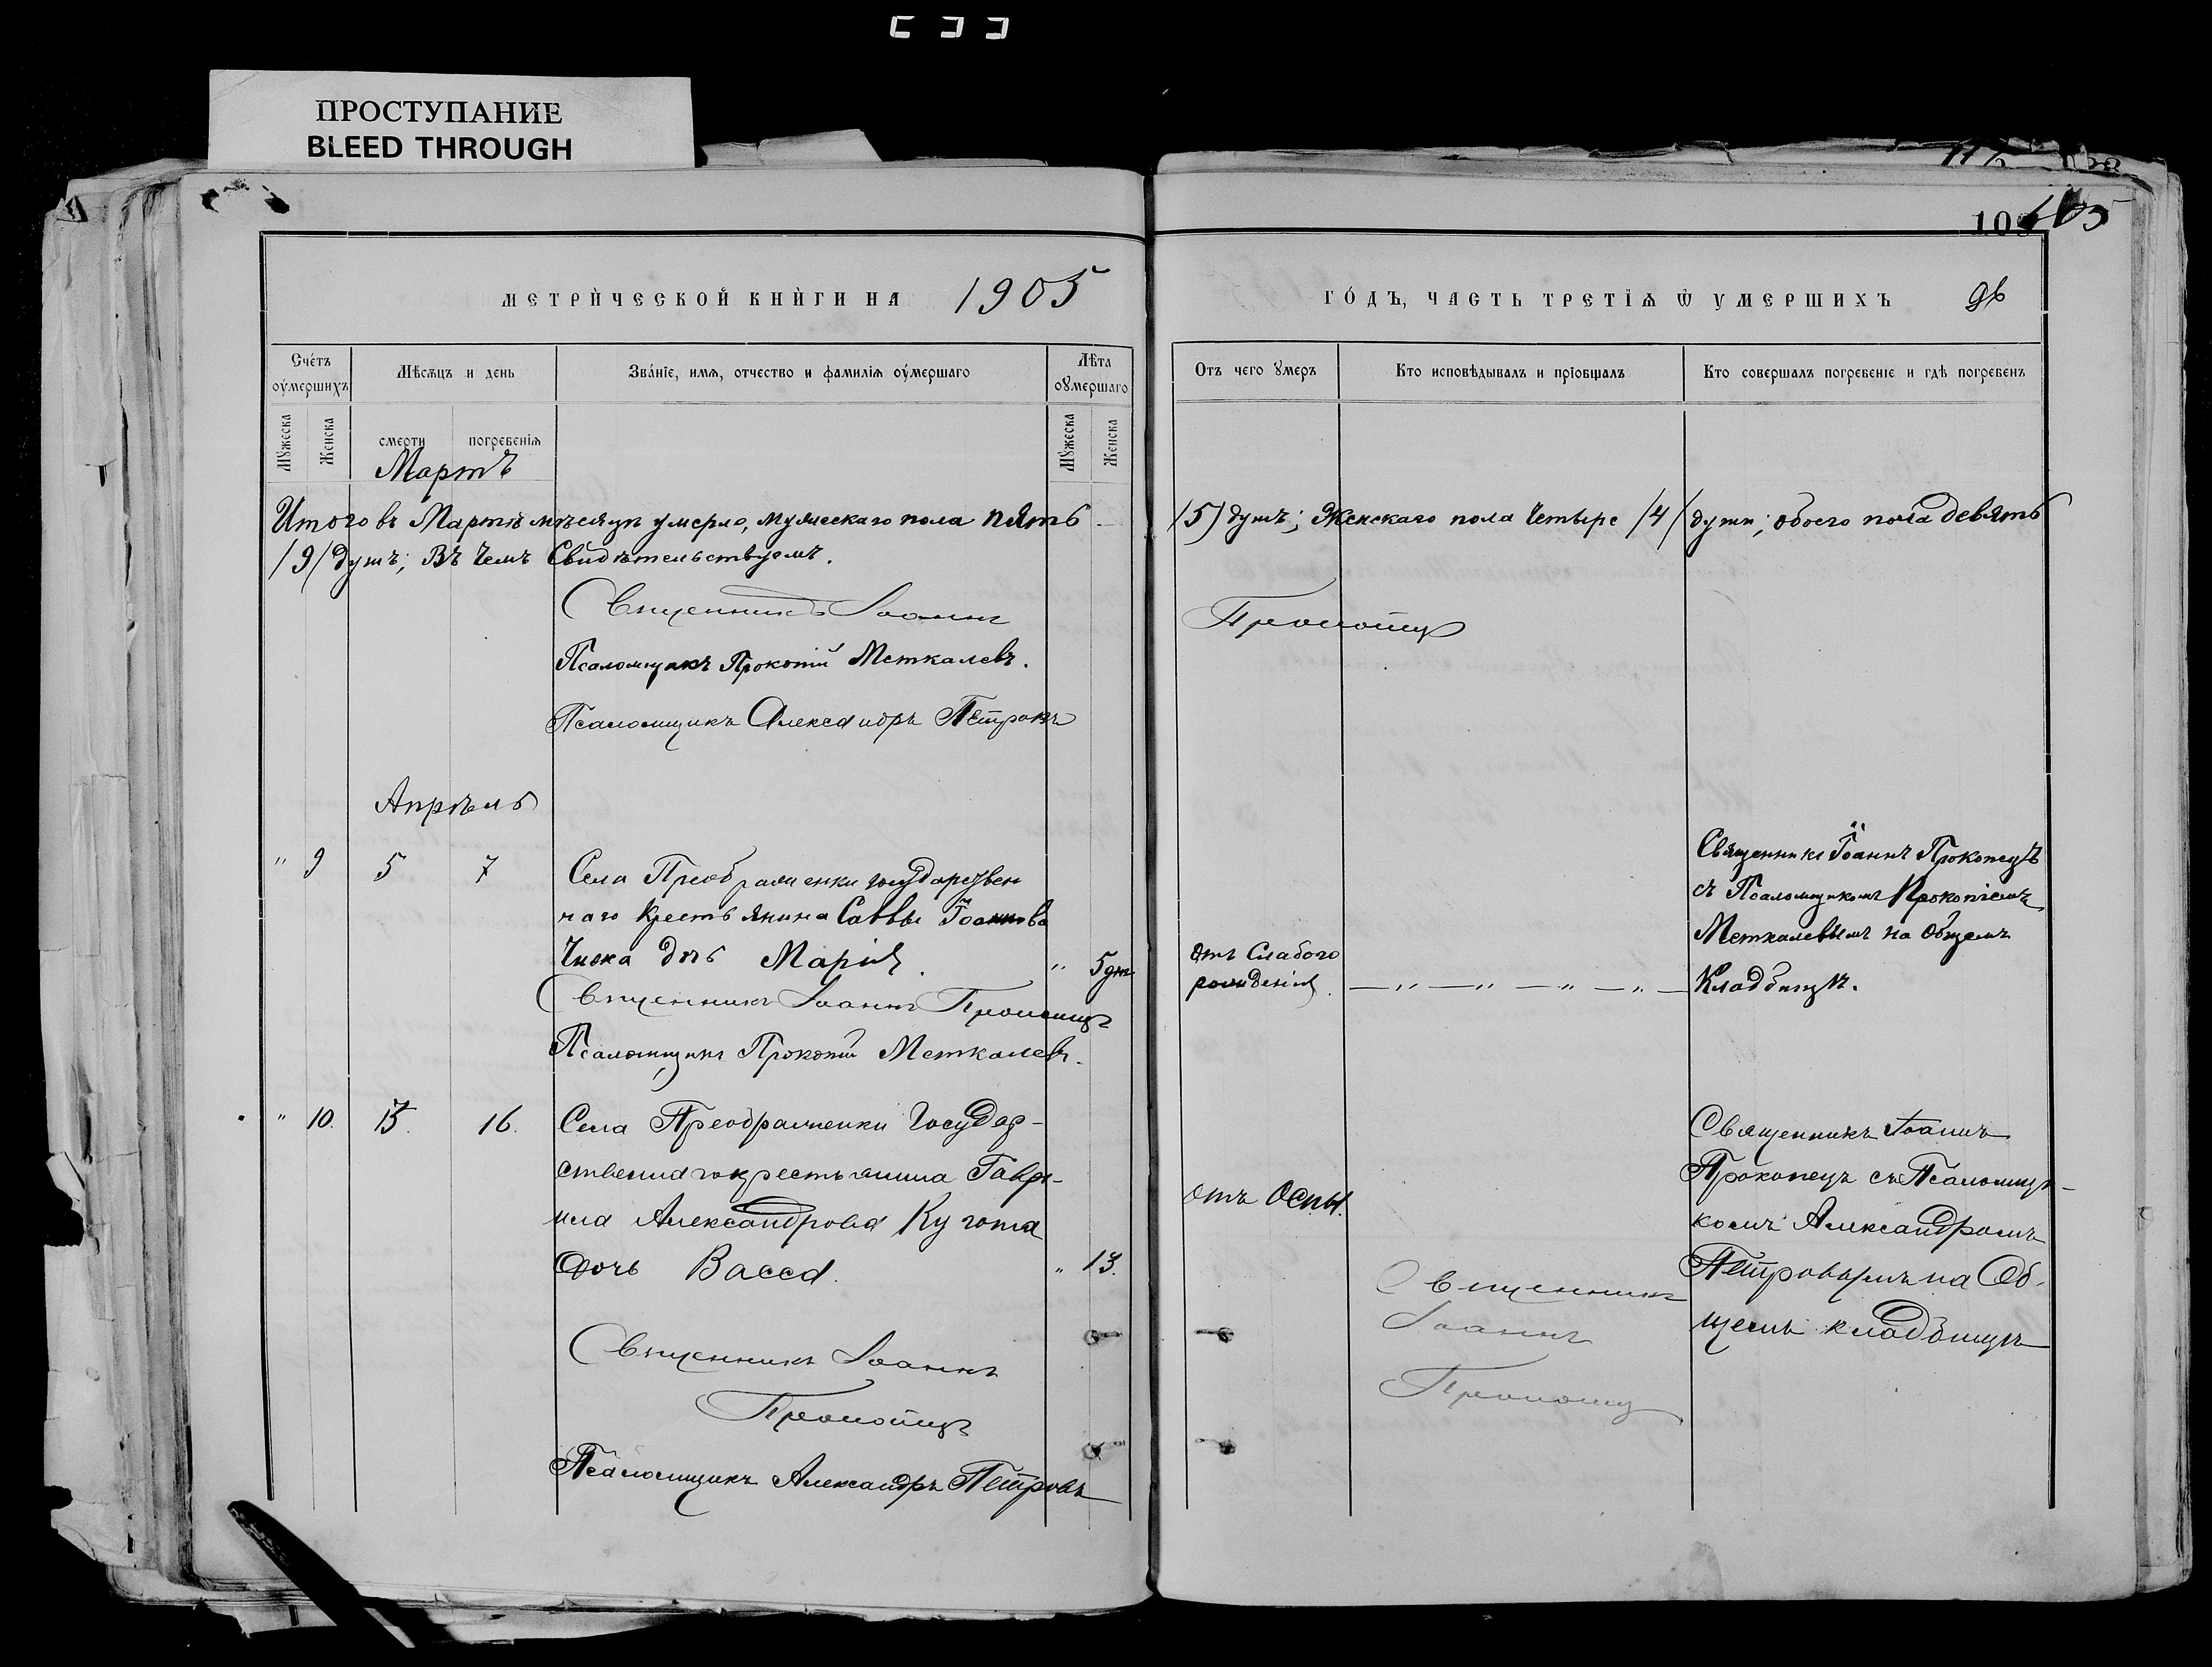 ПРОСТУПАНИЕ
BLEED THROUGH
105
МЕТРИЧЕСКОЙ КНИГИ НА 1905
ГОДЪ, ЧАСТЬ ТРЕТІЯ Ѿ УМЕРШИХЪ
Счетъ оумершихъ
Мѣсяцъ и день
Званіе, имя, отчество и фамилія оумершаго
Лѣта оумершаго
Отъ чего умеръ
Кто исповѣдывалъ и пріобщалъ
Кто совершалъ погребеніе и гдѣ погребенъ
Мужеска
Женска
смерти
погребенія
Мужеска
Женска
Мартъ
Итого въ Мартѣ мѣсяцѣ умерло, мужескаго пола пять
/5/ душъ; Женскаго пола четыре /4/ души; обоего пола девять
/9/ душъ; Въ чемъ Свидѣтельствуемъ.
Священникъ Іоаннъ Прокопецъ
Псаломщикъ Прокопій Меткалевъ.
Псаломщикъ Александръ Петровъ
Апрѣль
" 9 5 7
Села Преображенки государствен
наго крестьянина Саввы Іоаннова
Чижа дочь Марія.
" 5 дн.
отъ Слабого
рожденія.
— " — " — " — " —
Священникъ Іоаннъ Прокопецъ
съ Псаломщикомъ Прокопіемъ
Меткалевымъ на Общемъ
Кладбищѣ.
Священникъ Іоаннъ Прокопецъ
Псаломщикъ Прокопій Меткалевъ.
" 10. 16.
Села Преображенки Государ-
ственнаго крестьянина Гаврі-
ила Александрова
дочь Васса.
" 13.
отъ Оспы.
Священникъ
Іоаннъ
Прокопецъ
Священникъ Іоаннъ
Прокопецъ съ Псаломщи-
комъ Александромъ
Петровымъ на Об-
щемъ кладбищѣ
Священникъ Іоаннъ
Прокопецъ
Псаломщикъ Александръ Петровъ